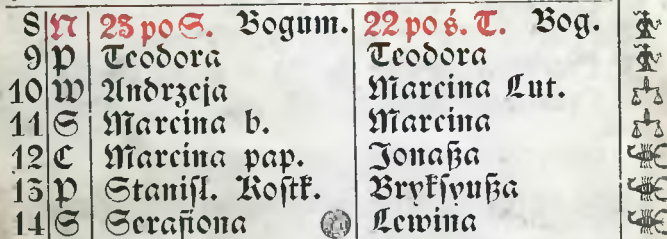 8 N 23 po S. Bogum. 22 po ś. T. Bog.
9 P Teodora Teodora
10 W Andrzeja Marcina Lut.
11 S Marcina b. Marcina
12 C Marcina pap. Jonaßa
13 P Staniſl. Koſtk. Brykſyußa
14 S Serafiona Lewina